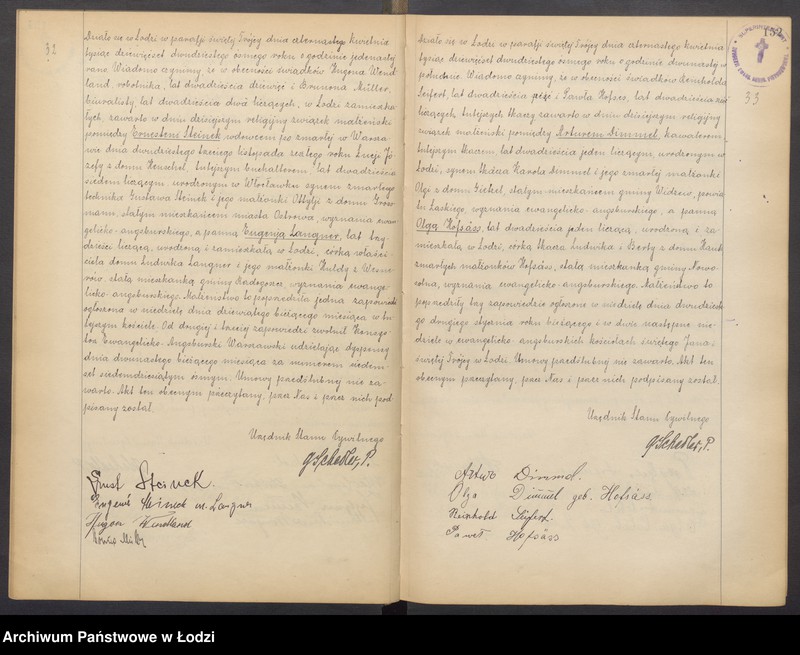 32
Działo się w Łodzi w parafji świętej Trójcy dnia czternastego kwietnia
tysiąc dziewięćset dwudziestego ósmego roku o godzinie jedenastej
rano Wiadomo czynimy, że w obecności świadków Hugona Wend-
land, robotnika, lat dwadzieścia dziewięć i Brunona Müller,
biuralisty, lat dwadzieścia dwa liczących, w Łodzi zamieszka-
łych, zawarto w dniu dzisiejszym religijny związek małżeński
pomiędzy Ernestem Steinek wdowcem po zmarłej w Warsza-
wie dnia dwudziestego trzeciego listopada zeszłego roku Łucji Jó-
zefy z domu Henschel, tutejszym buchalterem, lat dwadzieścia
siedem liczącym, urodzonym w Włocławku synem zmarłego
technika Gustawa Steinek i jego małżonki Ottylji z domu Gross-
mann, stałym mieszkańcem miasta Ostrowa, wyznania ewan-
gelicko-augsburskiego, a panną Eugenją Langner, lat trzy-
dzieści liczącą, urodzoną i zamieszkałą w Łodzi, córką właści-
ciela domu Ludwika Langner i jego małżonki Huldy z Wesne-
rów, stałą mieszkanką gminy Radogoszcz wyznania ewange-
licko-augsburskiego. Małżeństwo to poprzedziła jedna zapowiedź
ogłoszona w niedzielę dnia dziewiątego bieżącego miesiąca w tu-
tejszym kościele. Od drugiej i trzeciej zapowiedzi zwolnił Konsys-
torz Ewangelicko-Augsburski Warszawski udzielając dyspensy
dnia dwunastego bieżącego miesiąca za numerem siedem-
set siedemdziesiątym ósmym. Umowy przedślubnej nie za-
warto. Akt ten obecnym przeczytany, przez Nas i przez nich pod-
pisany został.
Urzędnik Stanu Cywilnego
G Schedler, P.
Ernst Steinek.
Eugenie Steinek z d. Langner
Hugon Wendland
Müller
152
33
Działo się w Łodzi w parafji świętej Trójcy dnia czternastego kwietnia
tysiąc dziewięćset dwudziestego ósmego roku o godzinie dwunastej w
południe. Wiadomo czynimy, że w obecności świadków Reinholda
Seifert, lat dwadzieścia pięć i Pawła Hofsess, lat dwadzieścia
liczących, tutejszych tkaczy zawarto w dniu dzisiejszym religijny
związek małżeński pomiędzy Arturem Dimmel, kawalerem,
tutejszym tkaczem, lat dwadzieścia jeden liczącym, urodzonym w
Łodzi, synem tkacza Karola Dimmel i jego zmarłej małżonki
Olgi z domu Giekel, stałym mieszkańcem gminy Widzew, powia-
tu Łaskiego, wyznania ewangelicko-augsburskiego, a panną
Olgą Hofsäss, lat dwadzieścia jeden liczącą, urodzoną i za-
mieszkałą w Łodzi, córką tkacza Ludwika i Berty z domu Hank
zmarłych małżonków Hofsäss, stałą mieszkanką gminy Nowo-
solna, wyznania ewangelicko-augsburskiego. Małżeństwo to
poprzedziły trzy zapowiedzie ogłoszone w niedzielę dnia dwudzieste-
go drugiego stycznia roku bieżącego i w dwie następne nie-
dziele w ewangelicko-augsburskich kościołach świętego Jana i
świętej Trójcy w Łodzi. Umowy przedślubnej nie zawarto. Akt ten
obecnym przeczytany, przez Nas i przez nich podpisany został.
Urzędnik Stanu Cywilnego
G Schedler, P.
Artur Dimmel.
Olga Dimmel geb. Hofsäss.
Reinhold Seifert.
Paweł Hofsäss
Archiwum Państwowe w Łodzi